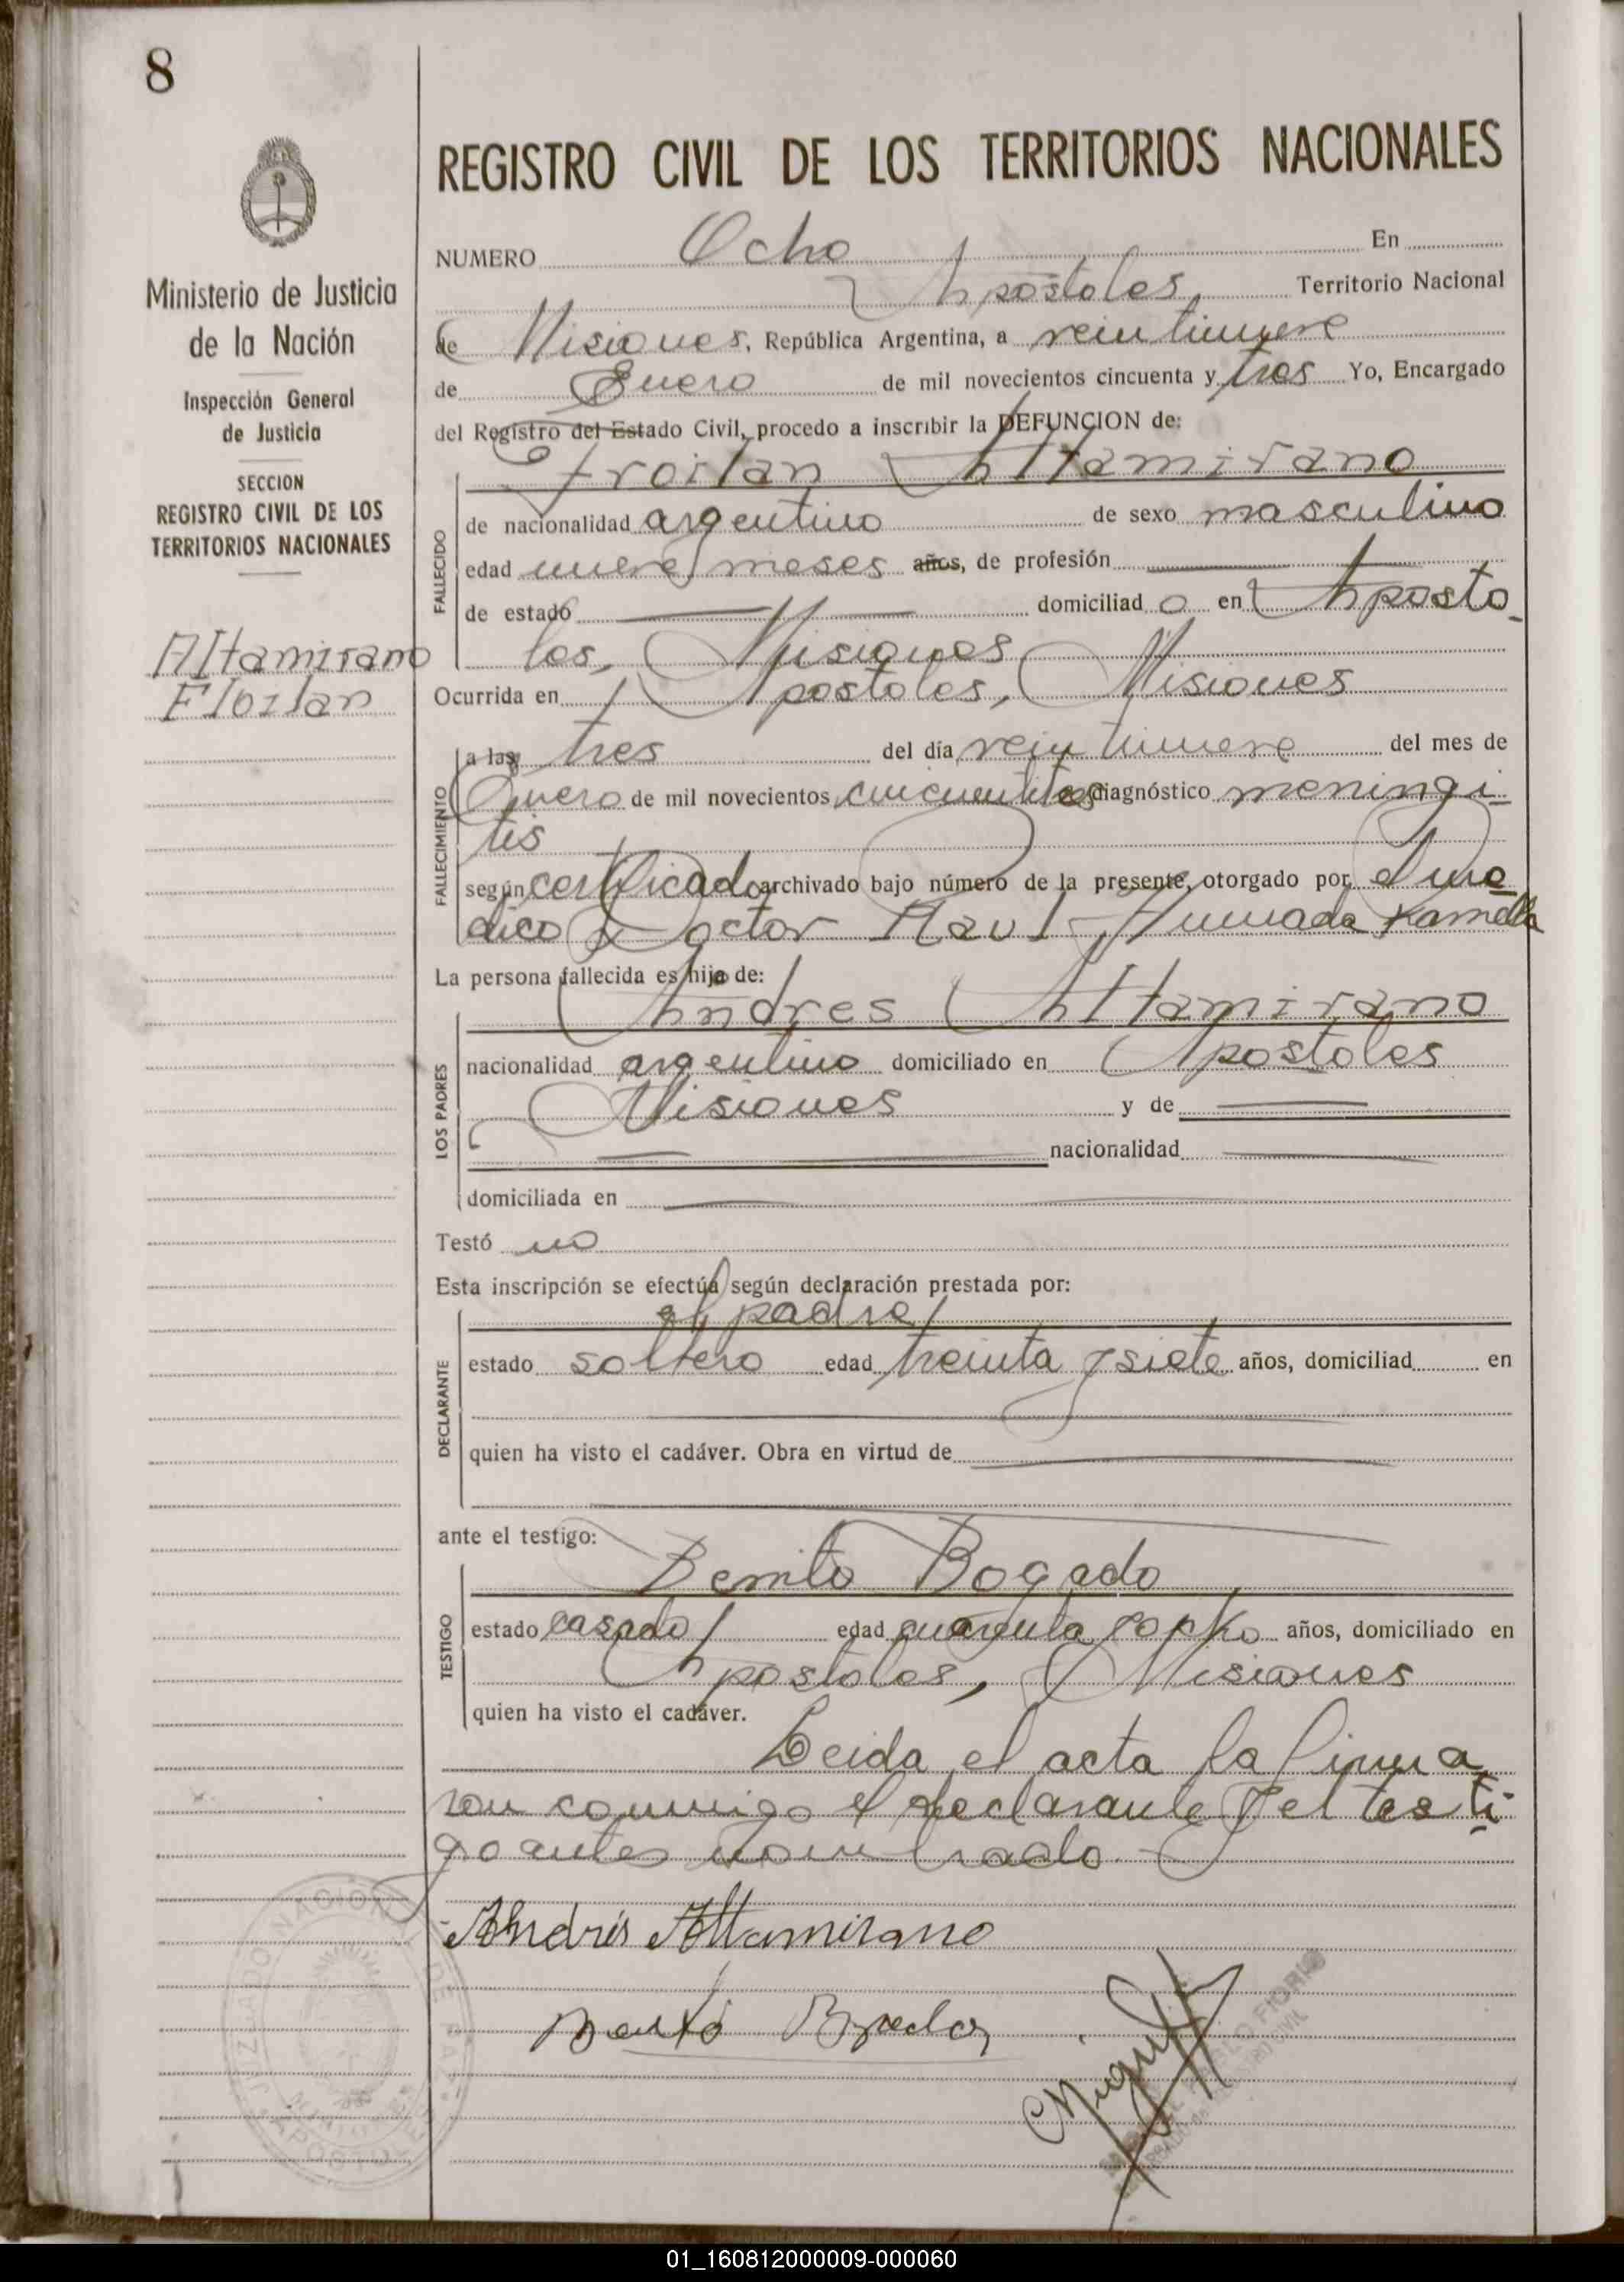 8
Ministerio de Justicia
de la Nación
Inspección General
de Justicia
SECCION
REGISTRO CIVIL DE LOS
TERRITORIOS NACIONALES
Altamirano
Floilan
REGISTRO CIVIL DE LOS TERRITORIOS NACIONALES
NUMERO Ocho En
Apostoles, Territorio Nacional
de Misiones, República Argentina, a veintinueve
de Enero de mil novecientos cincuenta y tres Yo, Encargado
del Registro del Estado Civil, procedo a inscribir la DEFUNCION de:
Froilan Altamirano
FALLECIDO
de nacionalidad argentino de sexo masculino
edad nueve meses años, de profesión
de estado domiciliad o en Aposto-
les, Misiones
Ocurrida en Apostoles, Misiones
FALLECIMIENTO
a las tres del día veintinueve del mes de
Enero de mil novecientos cincuentitres diagnóstico meningi-
tis
según certificado archivado bajo número de la presente, otorgado por el me-
dico Doctor Raul
La persona fallecida es hijo de:
Andres Altamirano
LOS PADRES
nacionalidad argentino domiciliado en Apostoles
Misiones y de
nacionalidad
domiciliada en
Testó no
Esta inscripción se efectúa según declaración prestada por:
el padre
DECLARANTE
estado soltero edad treinta y siete años, domiciliad en
quien ha visto el cadáver. Obra en virtud de
ante el testigo:
Benito Bogado
TESTIGO
estado casado edad cuarenta y ocho años, domiciliado en
Apostoles, Misiones
quien ha visto el cadáver.
Leida el acta la firma
ron conmigo el declarante y el testi-
go antes nombrado.
Andrés Altamirano
01_160812000009-000060